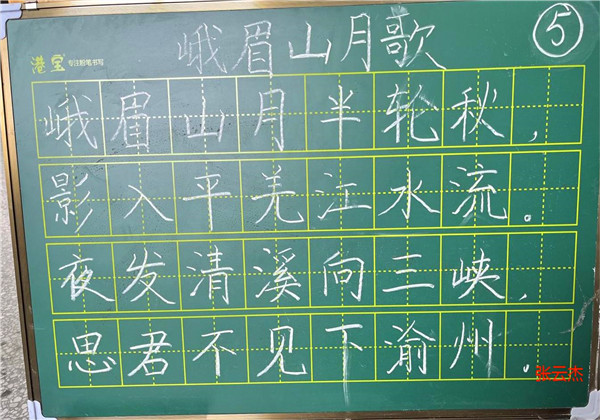 峨眉山月歌
⑤
港宝 专注粉笔书写
峨眉山月半轮秋,
影入平羌江水流。
夜发清溪向三峡,
思君不见下渝州。
张云杰